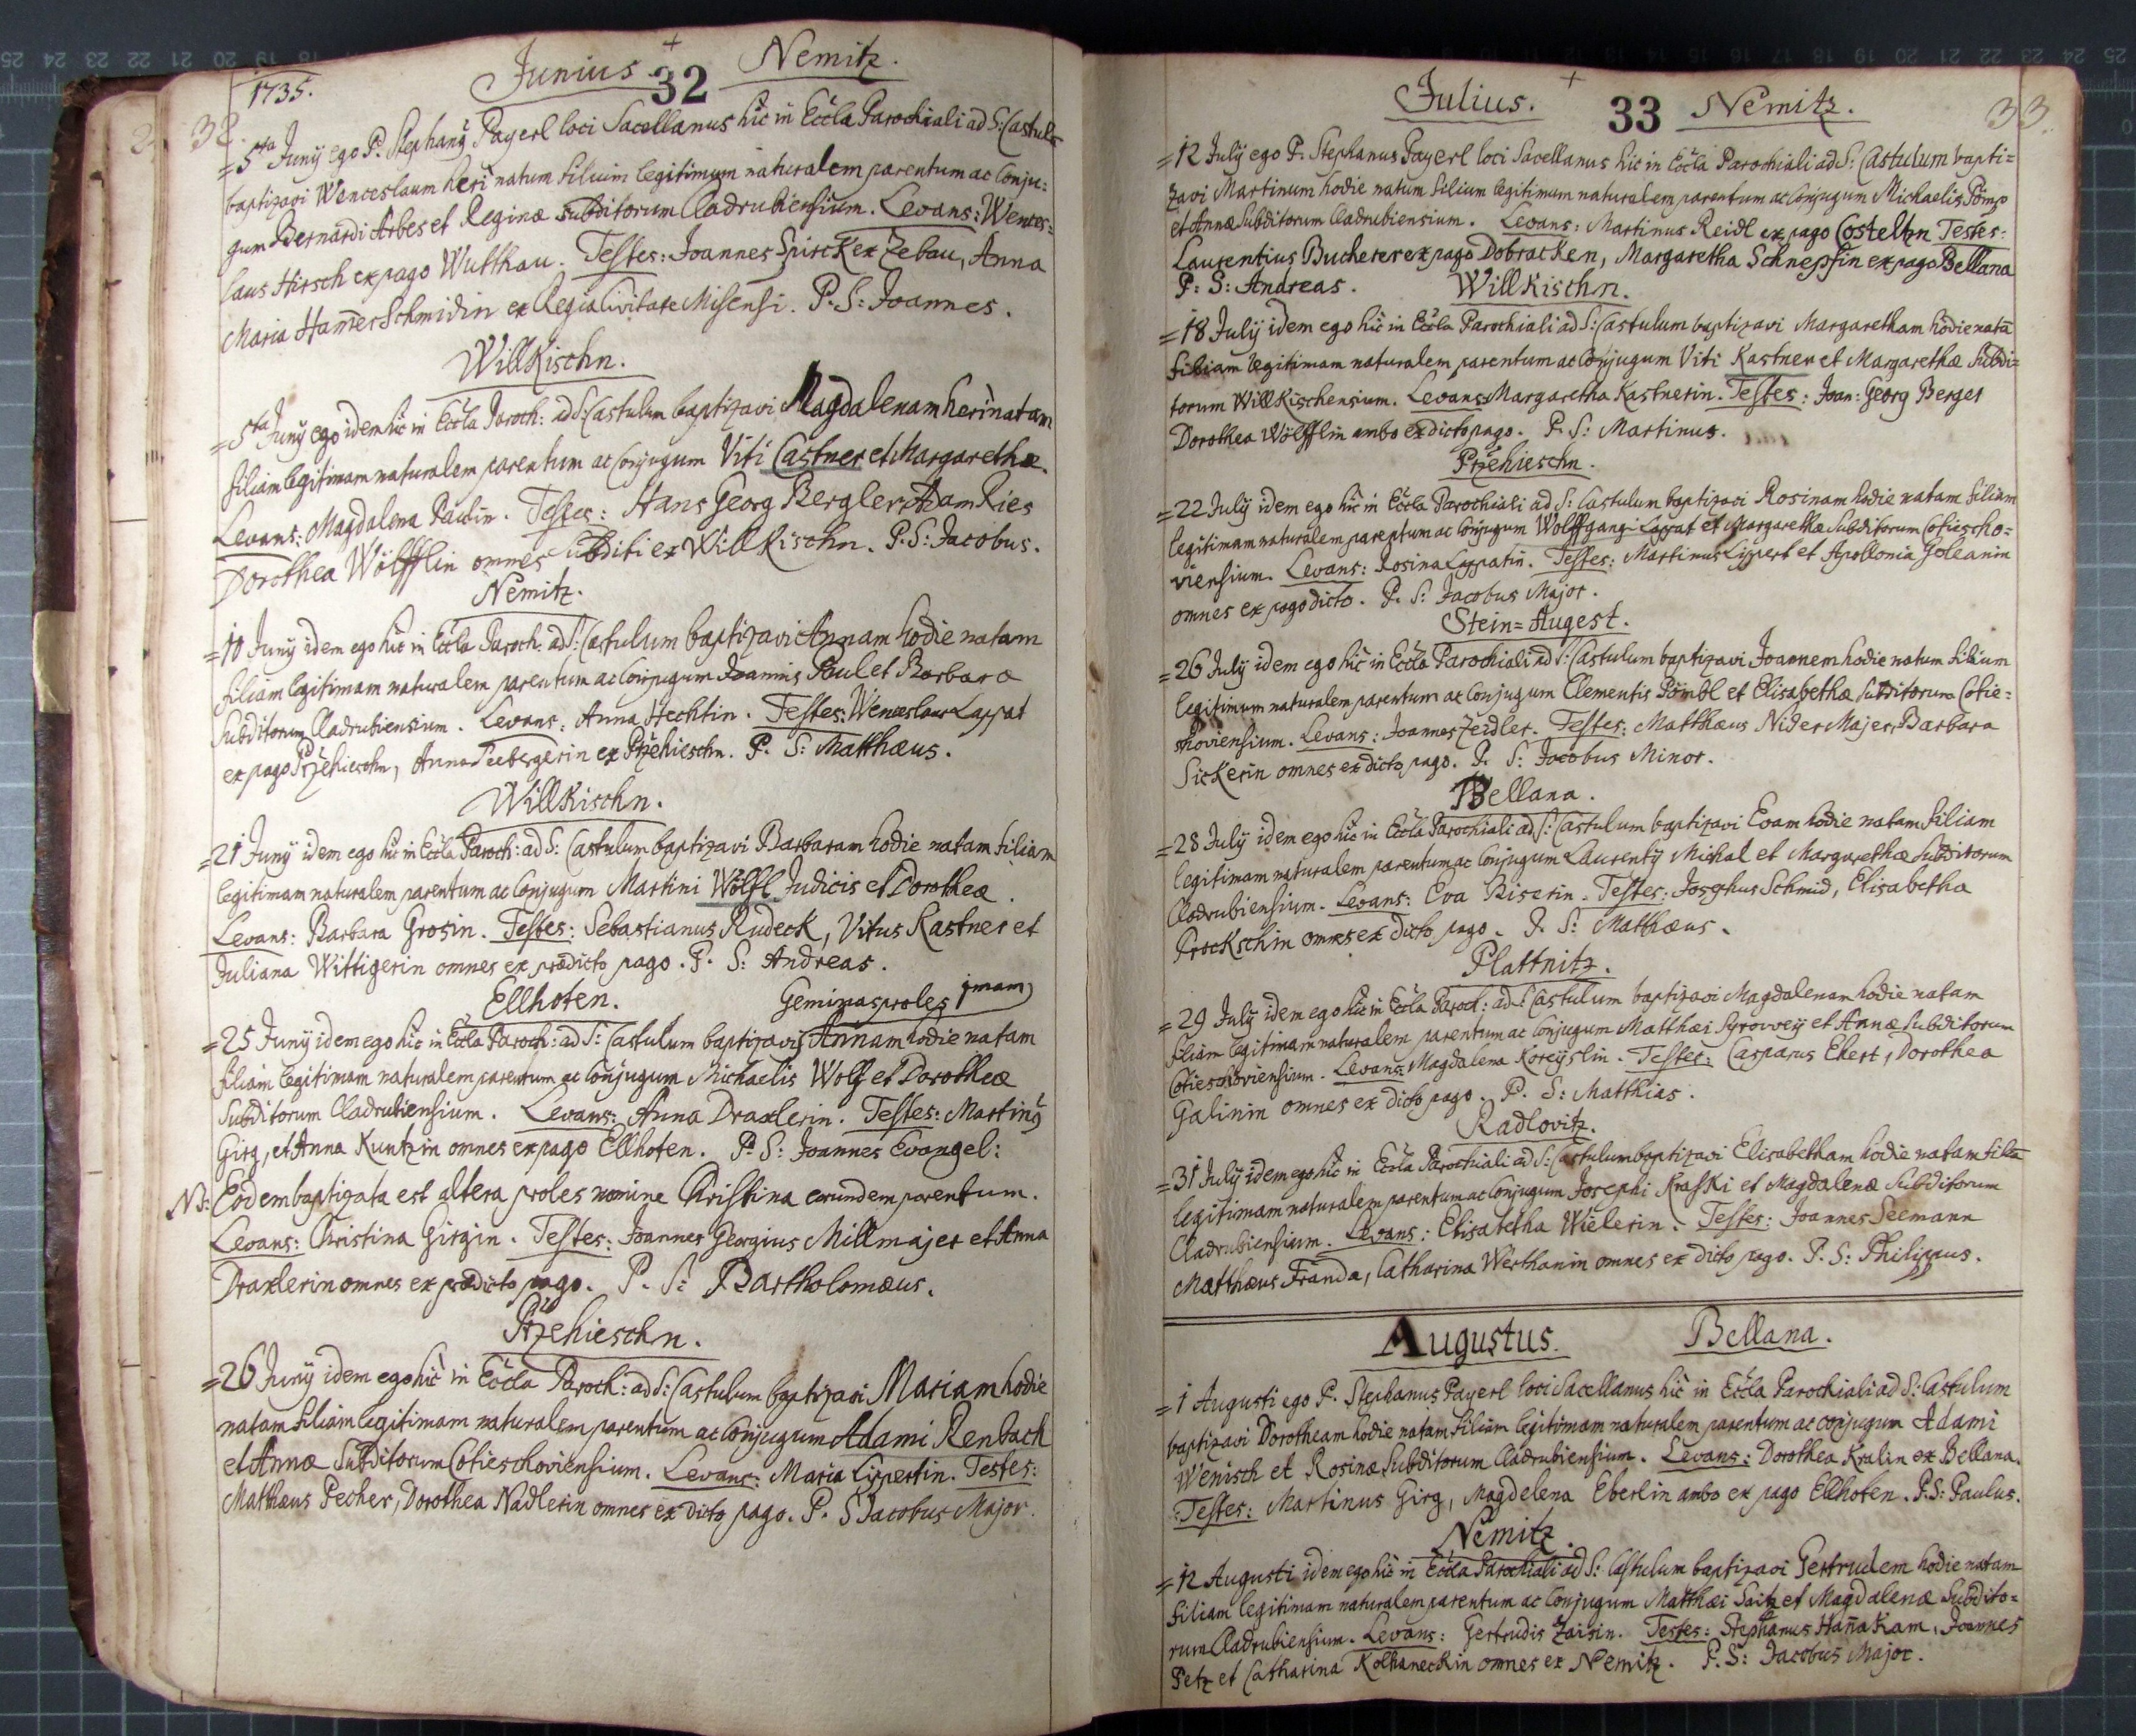 1735. Junius. 32 Nemitz.
32.
=5ta Juny ego P. Stephang Payerl loci Sacellanus hic in Eccla Parochiali ad S: Castulu
baptizavi Wenceslaum heri natum filium legitimum naturalem parentum ac Conju:
gum Bernardi Arbes et Reginæ subditorum Cladrubiensium. Levans: Wences:
laus Hirsch ex pago Wutthau. Testes: Joannes Spirck ex Zebau, Anna
Maria Hamer Schmidin ex Regia Civitate Misensi. P. S: Joannes.
Willkischn.
=5ta Juny ego idem hic in Eccla Paroch: ad S: Castulum baptizavi Magdalenam heri natam
filiam legitimam naturalem parentum ac Conjugum Viti Castner et Margarethæ.
Levans: Magdalena Paulin. Testes: Hans Georg Bergler Adam Ries
Dorothea Wölfflin omnes subditi ex Willkischn. P. S: Jacobus.
Nemitz.
=10 Juny idem ego hic in Eccla Paroch: ad S: Castulum baptizavi Annam hodie natam
filiam legitimam naturalem parentum ac Conjugum Joannis Poul et Barbaræ
subditorum Cladrubiensium. Levans: Anna Hechtin. Testes: Wenceslaus Lappat
ex pago Przehieschn, Anna Peebergerin ex Przehieschn. P. S: Matthæus.
Willkischn.
=21 Juny idem ego hic in Eccla Paroch: ad S: Castulum baptizavi Barbaram hodie natam filiam
legitimam naturalem parentum ac Conjugum Martini Wölfl Judicis et Dorotheæ.
Levans: Barbara Grosin. Testes: Sebastianus Rudeck, Vitus Kastner et
Juliana Wittigerin omnes ex prædicto pago. P. S: Andreas.
Ellhoten. Geminas proles 1mam
=25 Juny idem ego hic in Eccla Paroch: ad S: Castulum baptizavi Annam hodie natam
filiam legitimam naturalem parentum ac Conjugum Michaelis Wolf et Dorotheæ
subditorum Cladrubiensium. Levans: Anna Draxlerin. Testes: Marting
Girg, et Anna Kuntzin omnes ex pago Ellhoten. P. S: Joannes Evangel:
NB: Eodem baptizata est altera proles nomine Christina eorundem parentum.
Levans: Christina Girgin. Testes: Joannes Georgius Millmajer et Anna
Draxlerin omnes ex prædicto pago. P. S: Bartholomæus.
Przehieschn.
=26 Juny idem ego hic in Eccla Paroch: ad S: Castulum baptizavi Mariam hodie
natam filiam legitimam naturalem parentum ac Conjugum Adami Renbach
et Annæ Subditorum Cotieschoviensium. Levans: Maria Lippertin. Testes:
Matthæus Pecher, Dorothea Nadlerin omnes ex dicto pago. P. S Jacobus Major.
Julius. 33 Nemitz. 33.
=12 July ego P. Stephanus Payerl loci Sacellanus hic in Eccla Parochiali ad S: Castulum bapti=
zavi Martinum hodie natum filium legitimum naturalem parentum ac Conjugum Michaelis Pömp
et Annæ Subditorum Cladrubiensium. Levans: Martinus Reidl ex pago Costeltzn Testes:
Laurentius Bucherer ex pago Dobracken, Margaretha Schnepfin ex pago Bellana
P: S: Andreas. Willkischn.
=18 July idem ego hic in Eccla Parochiali ad S: Castulum baptizavi Margaretham hodie natã
filiam legitimam naturalem parentum ac Conjugum Viti Kastner et Margarethæ Subdi=
torum Willkischensium. Levans: Margaretha Kastnerin. Testes: Joan: Georg Berger
Dorothea Wölfflin ambo ex dicto pago. P. S: Martinus.
Przehieschn.
=22 July idem ego hic in Eccla Parochiali ad S: Castulum baptizavi Rosinam hodie natam filiam
legitimam naturalem parentum ac Conjugum Wolffgangi Lappat et Margarethæ Subditorum Cotiescho=
viensium. Levans: Rosina Lappatin. Testes: Martinus Lippert et Apollonia Goleanin
omnes ex pago dicto. P. S: Jacobus Major.
Stein=Augest.
=26 July idem ego hic in Eccla Parochiali ad S: Castulum baptizavi Joannem hodie natum filium
legitimum naturalem parentum ac Conjugum Clementis Pömbl et Elisabethæ Subditorum Cotie=
shoviensium. Levans: Joannes Zeidler. Testes: Matthæus NiderMajer, Barbara
Sickerin omnes ex dicto pago. P. S: Jacobus Minor.
Bellana.
=28 July idem ego hic in Eccla Parochiali ad S: Castulum baptizavi Evam hodie natam filiam
legitimam naturalem parentum ac Conjugum Laurentÿ Michal et Margarethæ Subditorum
Cladrubiensium. Levans: Eva Biserin. Testes: Josephus Schmid, Elisabetha
Prockschin omnes ex dicto pago. P. S: Matthæus.
Plattnitz.
=29 July idem ego hic in Eccla Paroch: ad S: Castulum baptizavi Magdalenam hodie natam
filiam legitimam naturalem parentum ac Conjugum Matthæi Syrovvey et Annæ Subditorum
Cotieschoviensium. Levans: Magdalena Koreyslin. Testes: Casparus Ekert, Dorothea
Galinin omnes ex dicto pago. P. S: Matthias.
Radlovitz.
=31 July idem ego hic in Eccla Parochiali ad S: Castulum baptizavi Elisabetham hodie natam filiã
legitimam naturalem parentum ac Conjugum Josephi Kraski et Magdalenæ Subditorum
Cladrubiensium. Levans: Elisabetha Wielerin. Testes: Joannes Seemann
Matthæus Franda, Catharina Werthanin omnes ex dicto pago. P. S: Philippus.
Augustus. Bellana.
=1 Augusti ego P. Stephanus Payerl loci Sacellanus hic in Eccla Parochiali ad S: Castulum
baptizavi Dorotheam hodie natam filiam legitimam naturalem parentum ac conjugum Adami
Wenisch et Rosinæ Subditorum Cladrubiensium. Levans: Dorothea Kralin ex Bellana.
Testes: Martinus Girg, Magdelena Eberlin ambo ex pago Ellhoten. P. S: Paulus.
Nemitz.
=12 Augusti idem ego hic in Eccla Parochiali ad S: Castulum baptizavi Gertrudem hodie natam
filiam legitimam naturalem parentum ac Conjugum Matthæi Saitz et Magdalenæ Subdito=
rum Cladrubiensium. Levans: Gertrudis Zaisin. Testes: Stephanus Hañakam, Joannes
Petz et Catharina Kolhaneckin omnes ex Nemitz. P. S: Jacobus Major.